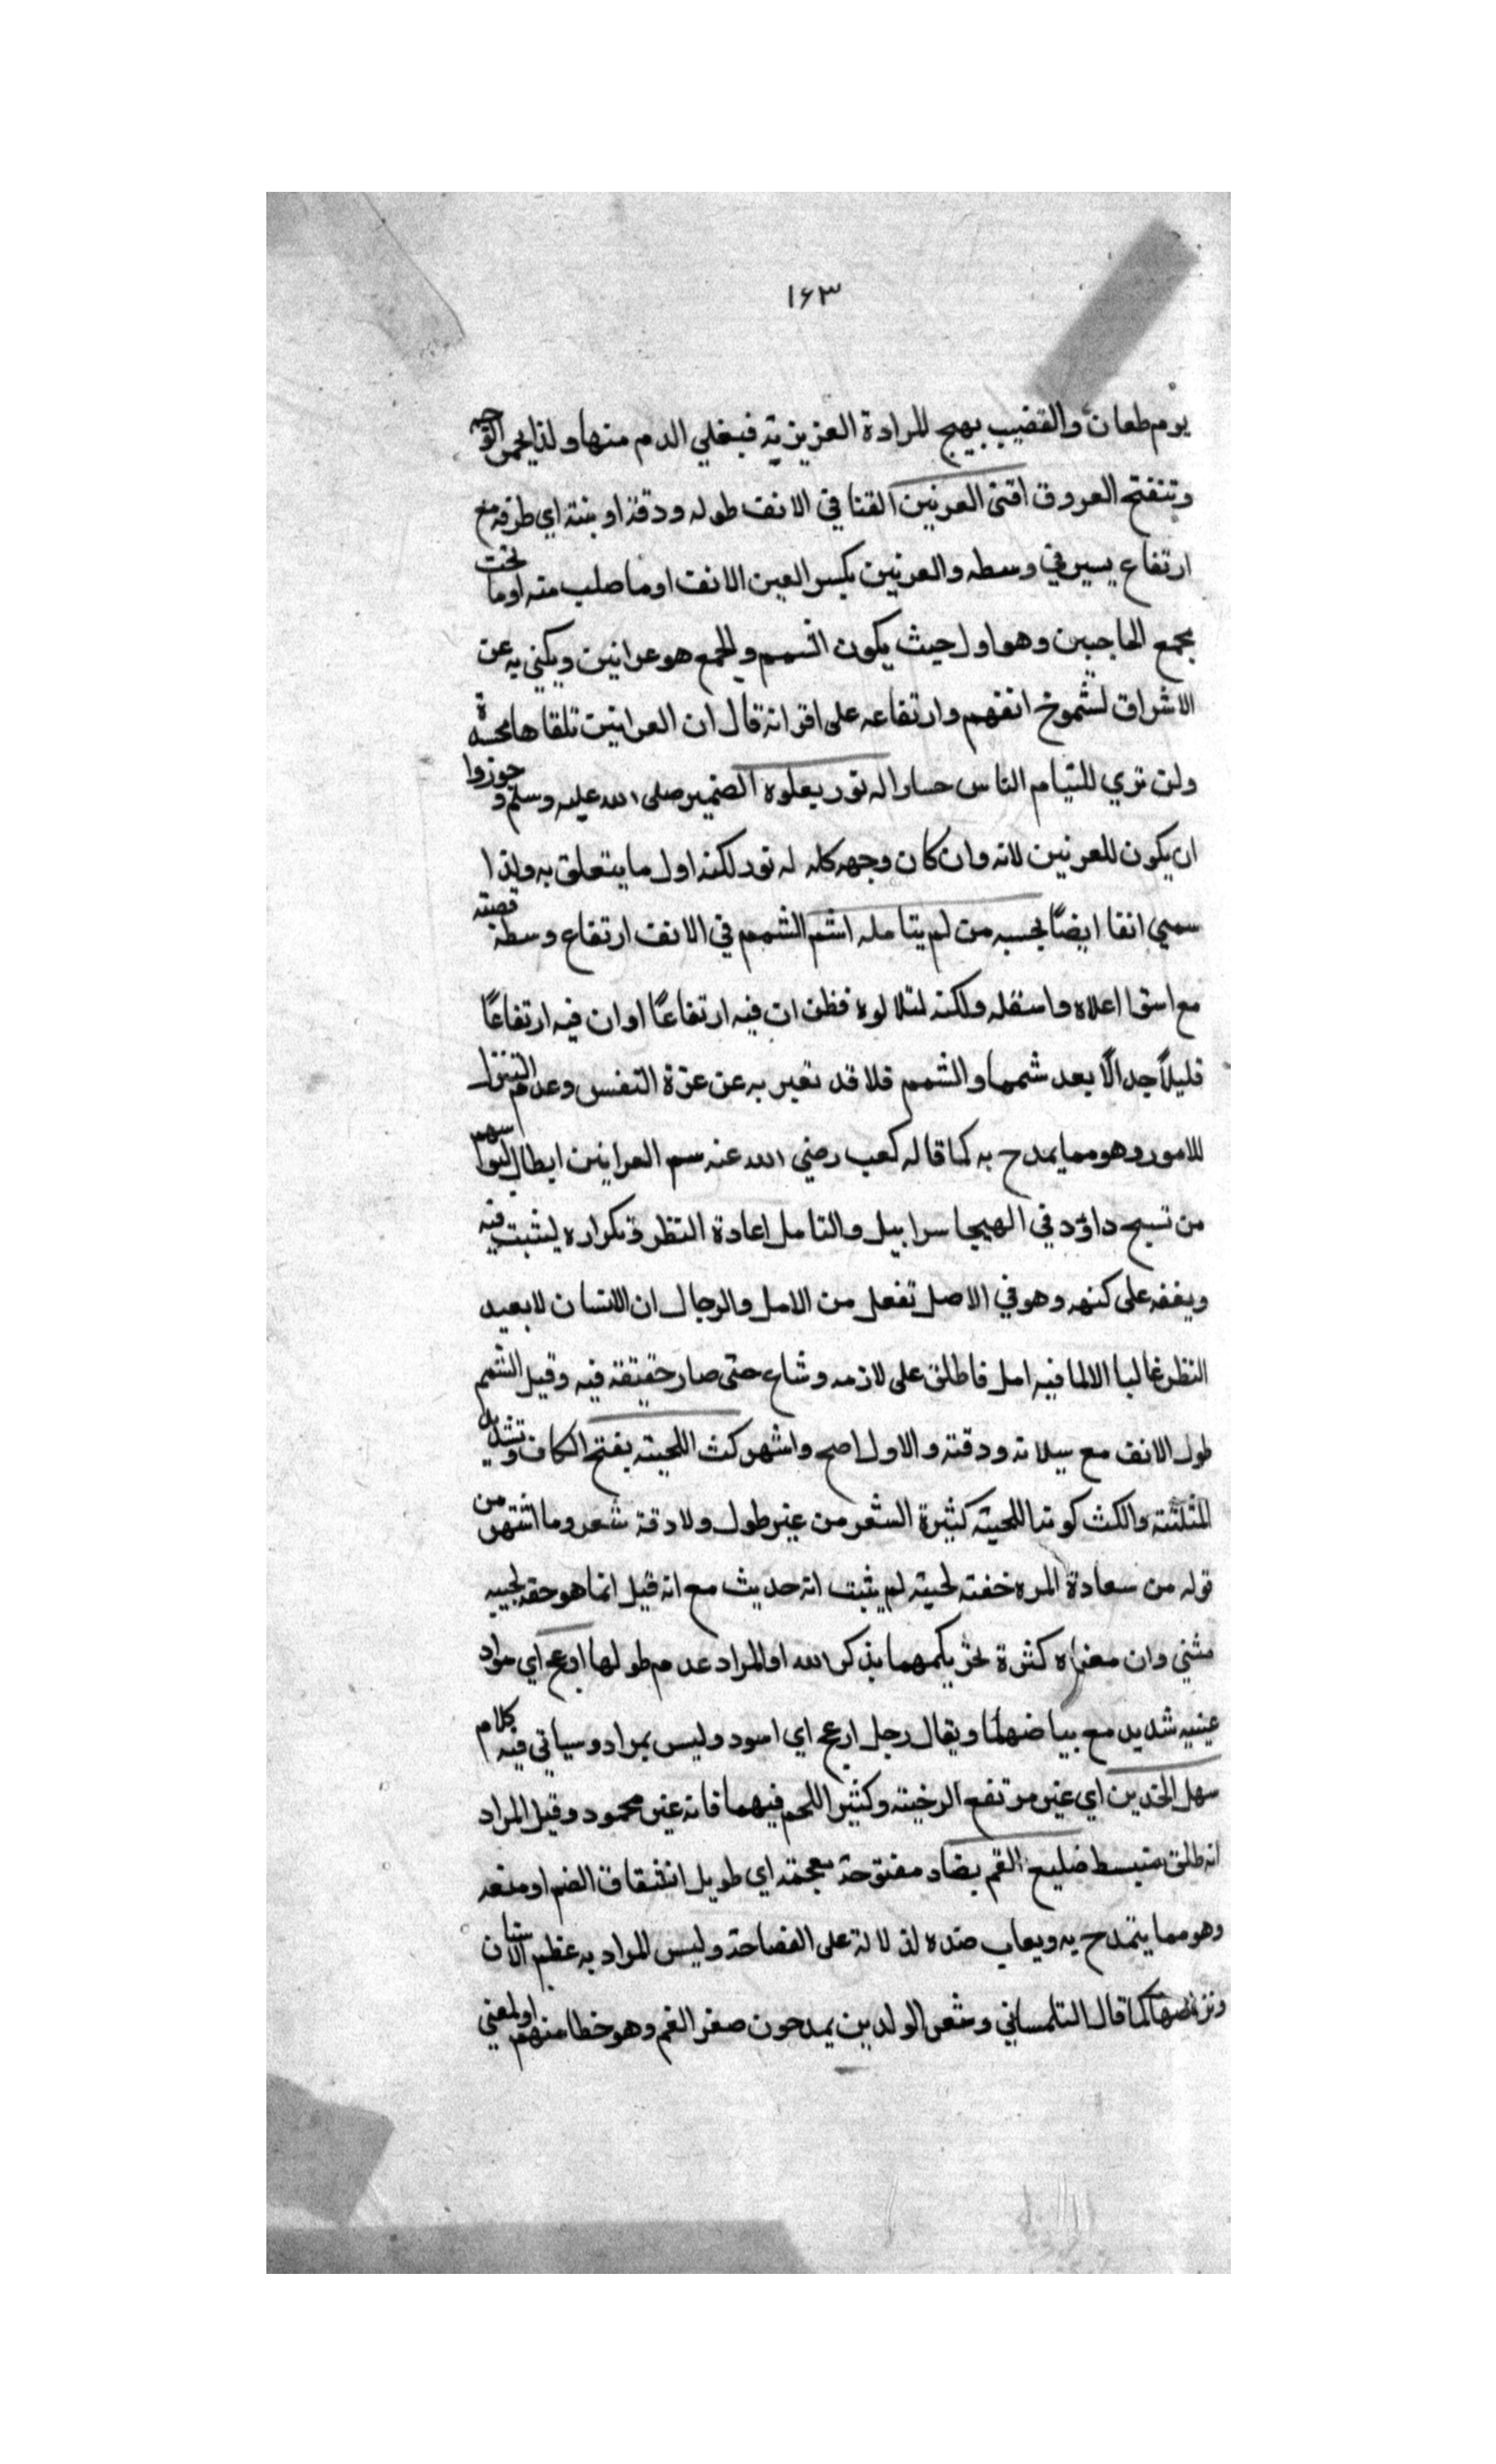 ١٦٣
يوم طعان والقضيب يهيج للمرادة العزيزية فيغلي الدم منها ولذا يحمر الوجه
وتنفتح العروق اقنى العرنين القنا في الانف طوله ودقة اربنته اي طرفه مع
ارتفاع يسير في وسطه والعرنين بكسر العين الانف او ما صلب منه او ما تحت
مجمع الحاجبين وهو اول حيث يكون الشمم والجمع هو عرانين ويكني به عن
الاشراف لشموخ انفهم وارتفاعه على اقرانه قال ان العرانين تلقاها محسدة
ولن تري للئيام الناس حسادا له نور يعلوه الضمير صلى الله عليه وسلم وجوزوا
ان يكون للعرنين لانه وان كان وجهه كله له نور لكنه اول ما يتعلق به ولذا
سمي انفا ايضًا يحسبه من لم يتامله اشم الشمم في الانف ارتفاع وسط قصبته
مع استوا اعلاه واسفله ولكنه لتلالوه فظن ان فيه ارتفاعًا او ان فيه ارتفاعًا
قليلاً جدالًا يعد شمما والشمم قلا قد تعبر به عن عزة النفس وعدم التنزل
للامور وهو مما يمدح به كما قاله كعب رضي الله عنه سم العرانين ابطال لبوسهم
من نسج داؤد في الهيجا سرابيل والتامل اعادة النظر وتكراره ليثبت فيه
ويقفه على كنهه وهو في الاصل تفعل من الامل والرجال ان الانسان لا يعيد
النظر غالبا الا لما فيه امل فاطلق على لازمه وشاع حتى صار حقيقة فيه وقيل الشمم
طول الانف مع سيلانه ودقته والاول اصح واشهر كث اللحية بفتح الكاف وتشديد
المثلثة والكث كوننا اللحية كثيرة الشعر من غير طول ولا دقة شعر وما اشتهر من
قوله من سعادة المره خفته لحيته لم يثبت انه حديث مع انه قيل انما هو حقه لحييه
مثني وان معناه كثرة تحريكهما بذكر الله او المراد عدم طولها ادعج اي سواد
عينيه شديد مع بياضهما ويقال رجل ادعج اي اسود وليس بمراد وسياتي فيه كلام
سهل الخدين اي غير مرتفع الوجنة وكثير اللحم فيهما فانه غير محمود وقيل المراد
انه طلق منبسط ضليع الفم بضاد مفتوحة معجمة اي طويل انشقاق الفم او منعه
وهو مما يتمدح به ويعاب ضده لدلالة على الفصاحة وليس المراد به عظم الاسنان
وتراصها كما قال التلمساني وشعر الولدين يمدحون صغر الفم وهو خطا منهم او لمعني